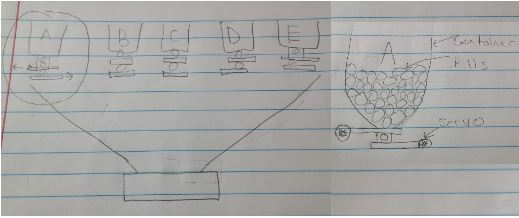 A B C D E
A
Container
Pills
Servo